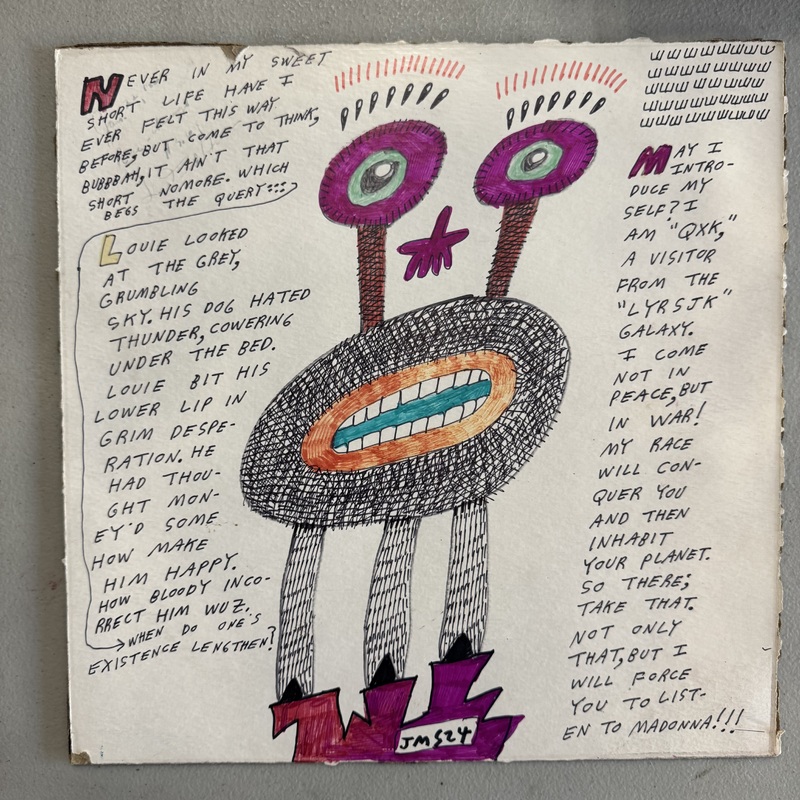 NEVER IN MY SWEET
SHORT LIFE HAVE I
EVER FELT THIS WAY
BEFORE, BUT COME TO THINK,
BUBBBAH, IT AIN'T THAT
SHORT NOMORE. WHICH
BEGS THE QUERY:::
LOUIE LOOKED
AT THE GREY,
GRUMBLING
SKY. HIS DOG HATED
THUNDER, COWERING
UNDER THE BED.
LOUIE BIT HIS
LOWER LIP IN
GRIM DESPE-
RATION. HE
HAD THOU-
GHT MON-
EY'D SOME
HOW MAKE
HIM HAPPY.
HOW BLOODY INCO-
RRECT HIM WUZ.
WHEN DO ONE'S
EXISTENCE LENGTHEN?
MAY I
INTRO-
DUCE MY
SELF? I
AM "QXK,"
A VISITOR
FROM THE
"LYRSJK"
GALAXY.
I COME
NOT IN
PEACE, BUT
IN WAR!
MY RACE
WILL CON-
QUER YOU
AND THEN
INHABIT
YOUR PLANET.
SO THERE;
TAKE THAT.
NOT ONLY
THAT, BUT I
WILL FORCE
YOU TO LIST-
EN TO MADONNA!!!
JMS24